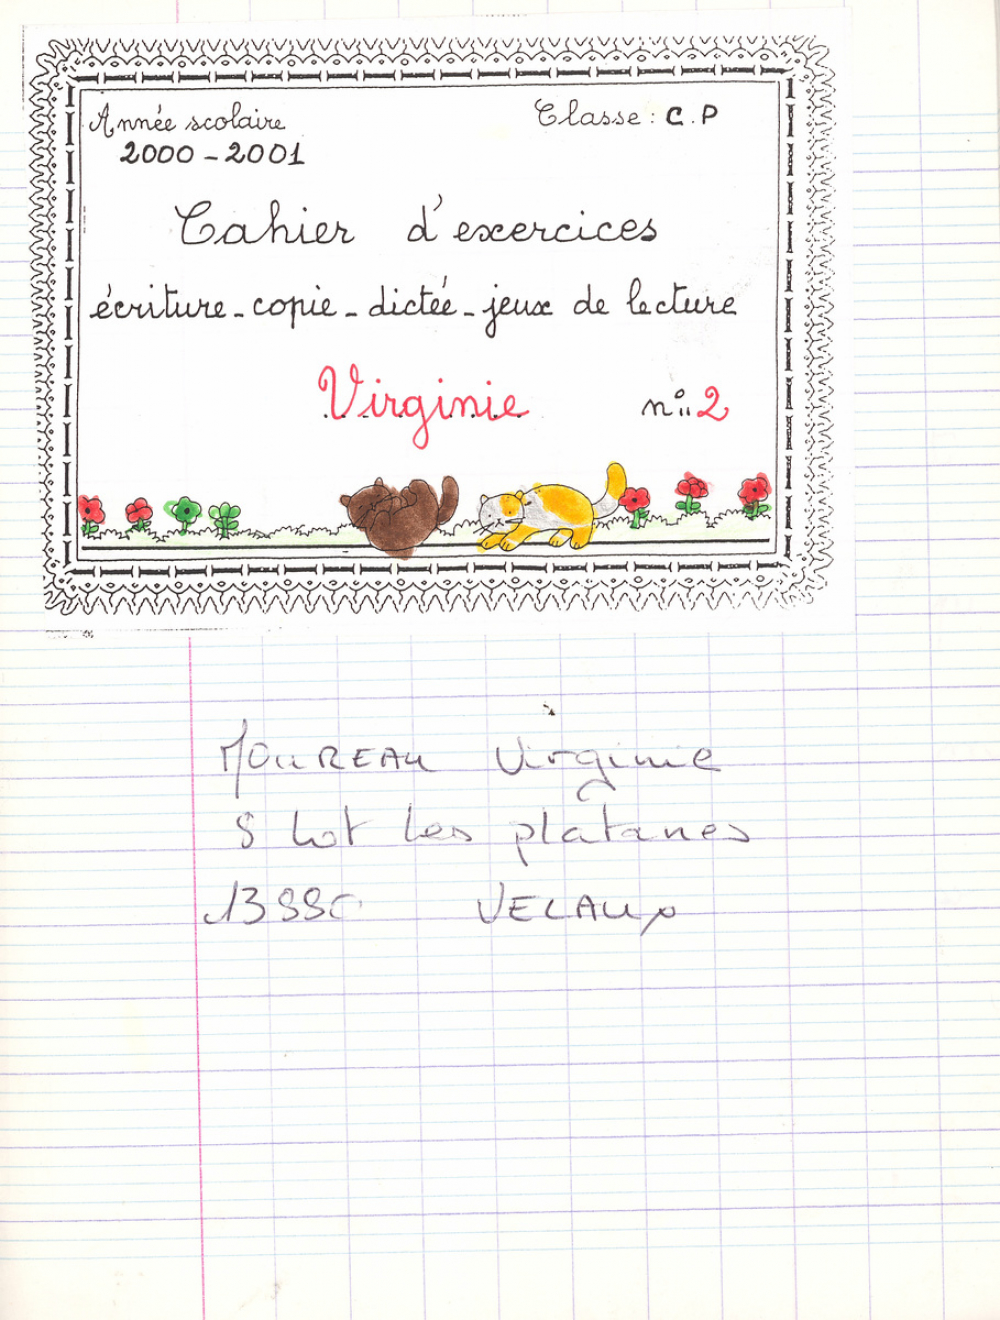 Année scolaire
2000-2001
Classe : C.P
Cahier d'exercices
écriture - copie - dictée - jeux de lecture
Virginie n° 2
MOUREAU Virginie
8 lot Les platanes
VELAUX